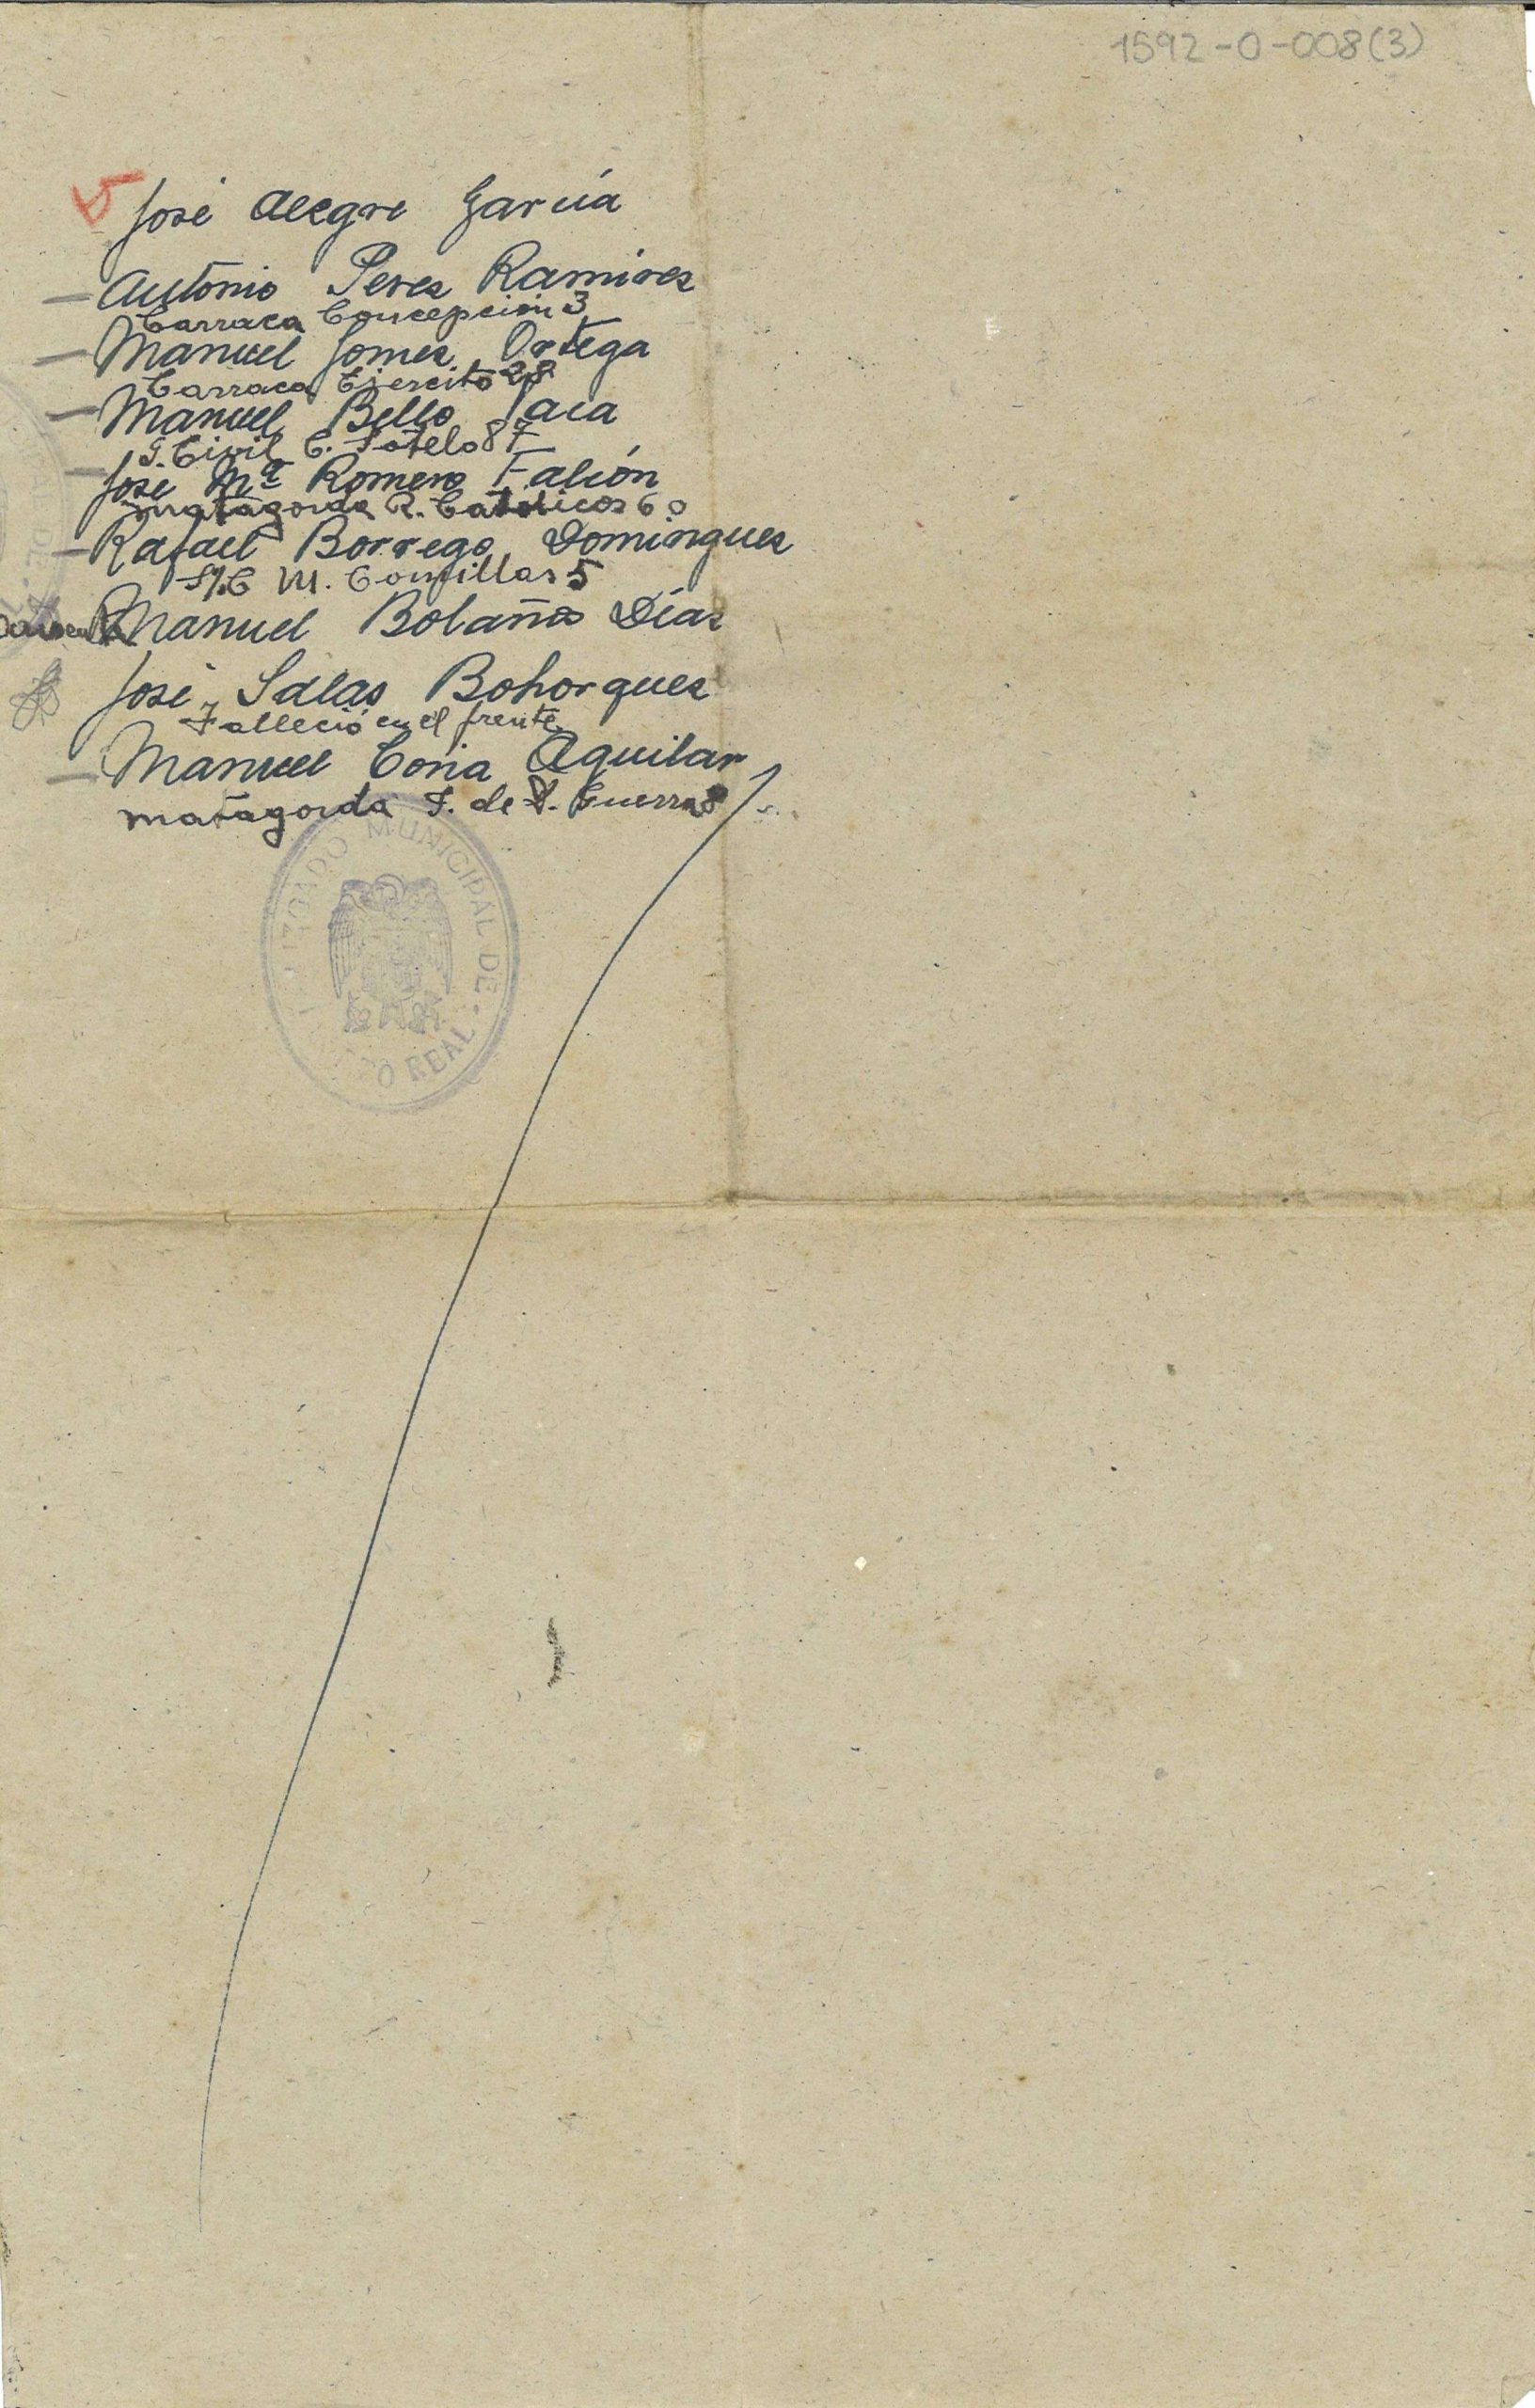 1592-0-008(3)
José Alegre García
Antonio Peres Ramires
Carraca Concepción 3
Manuel Gomes Ortega
Carraca Ejercito 28
Manuel Bello
G. Civil C. Sotelo 87
José Mª Romero Falcón
Matagorda R. Catolicos 60
Rafael Borrego Domingues
S/C M. Comillas 5
Manuel Bolaños Días
José Salas Bohorques
Falleció en el frente
Manuel Coria Aguilar
Matagorda F. de Guerra 8
JUZGADO MUNICIPAL DE
O REAL